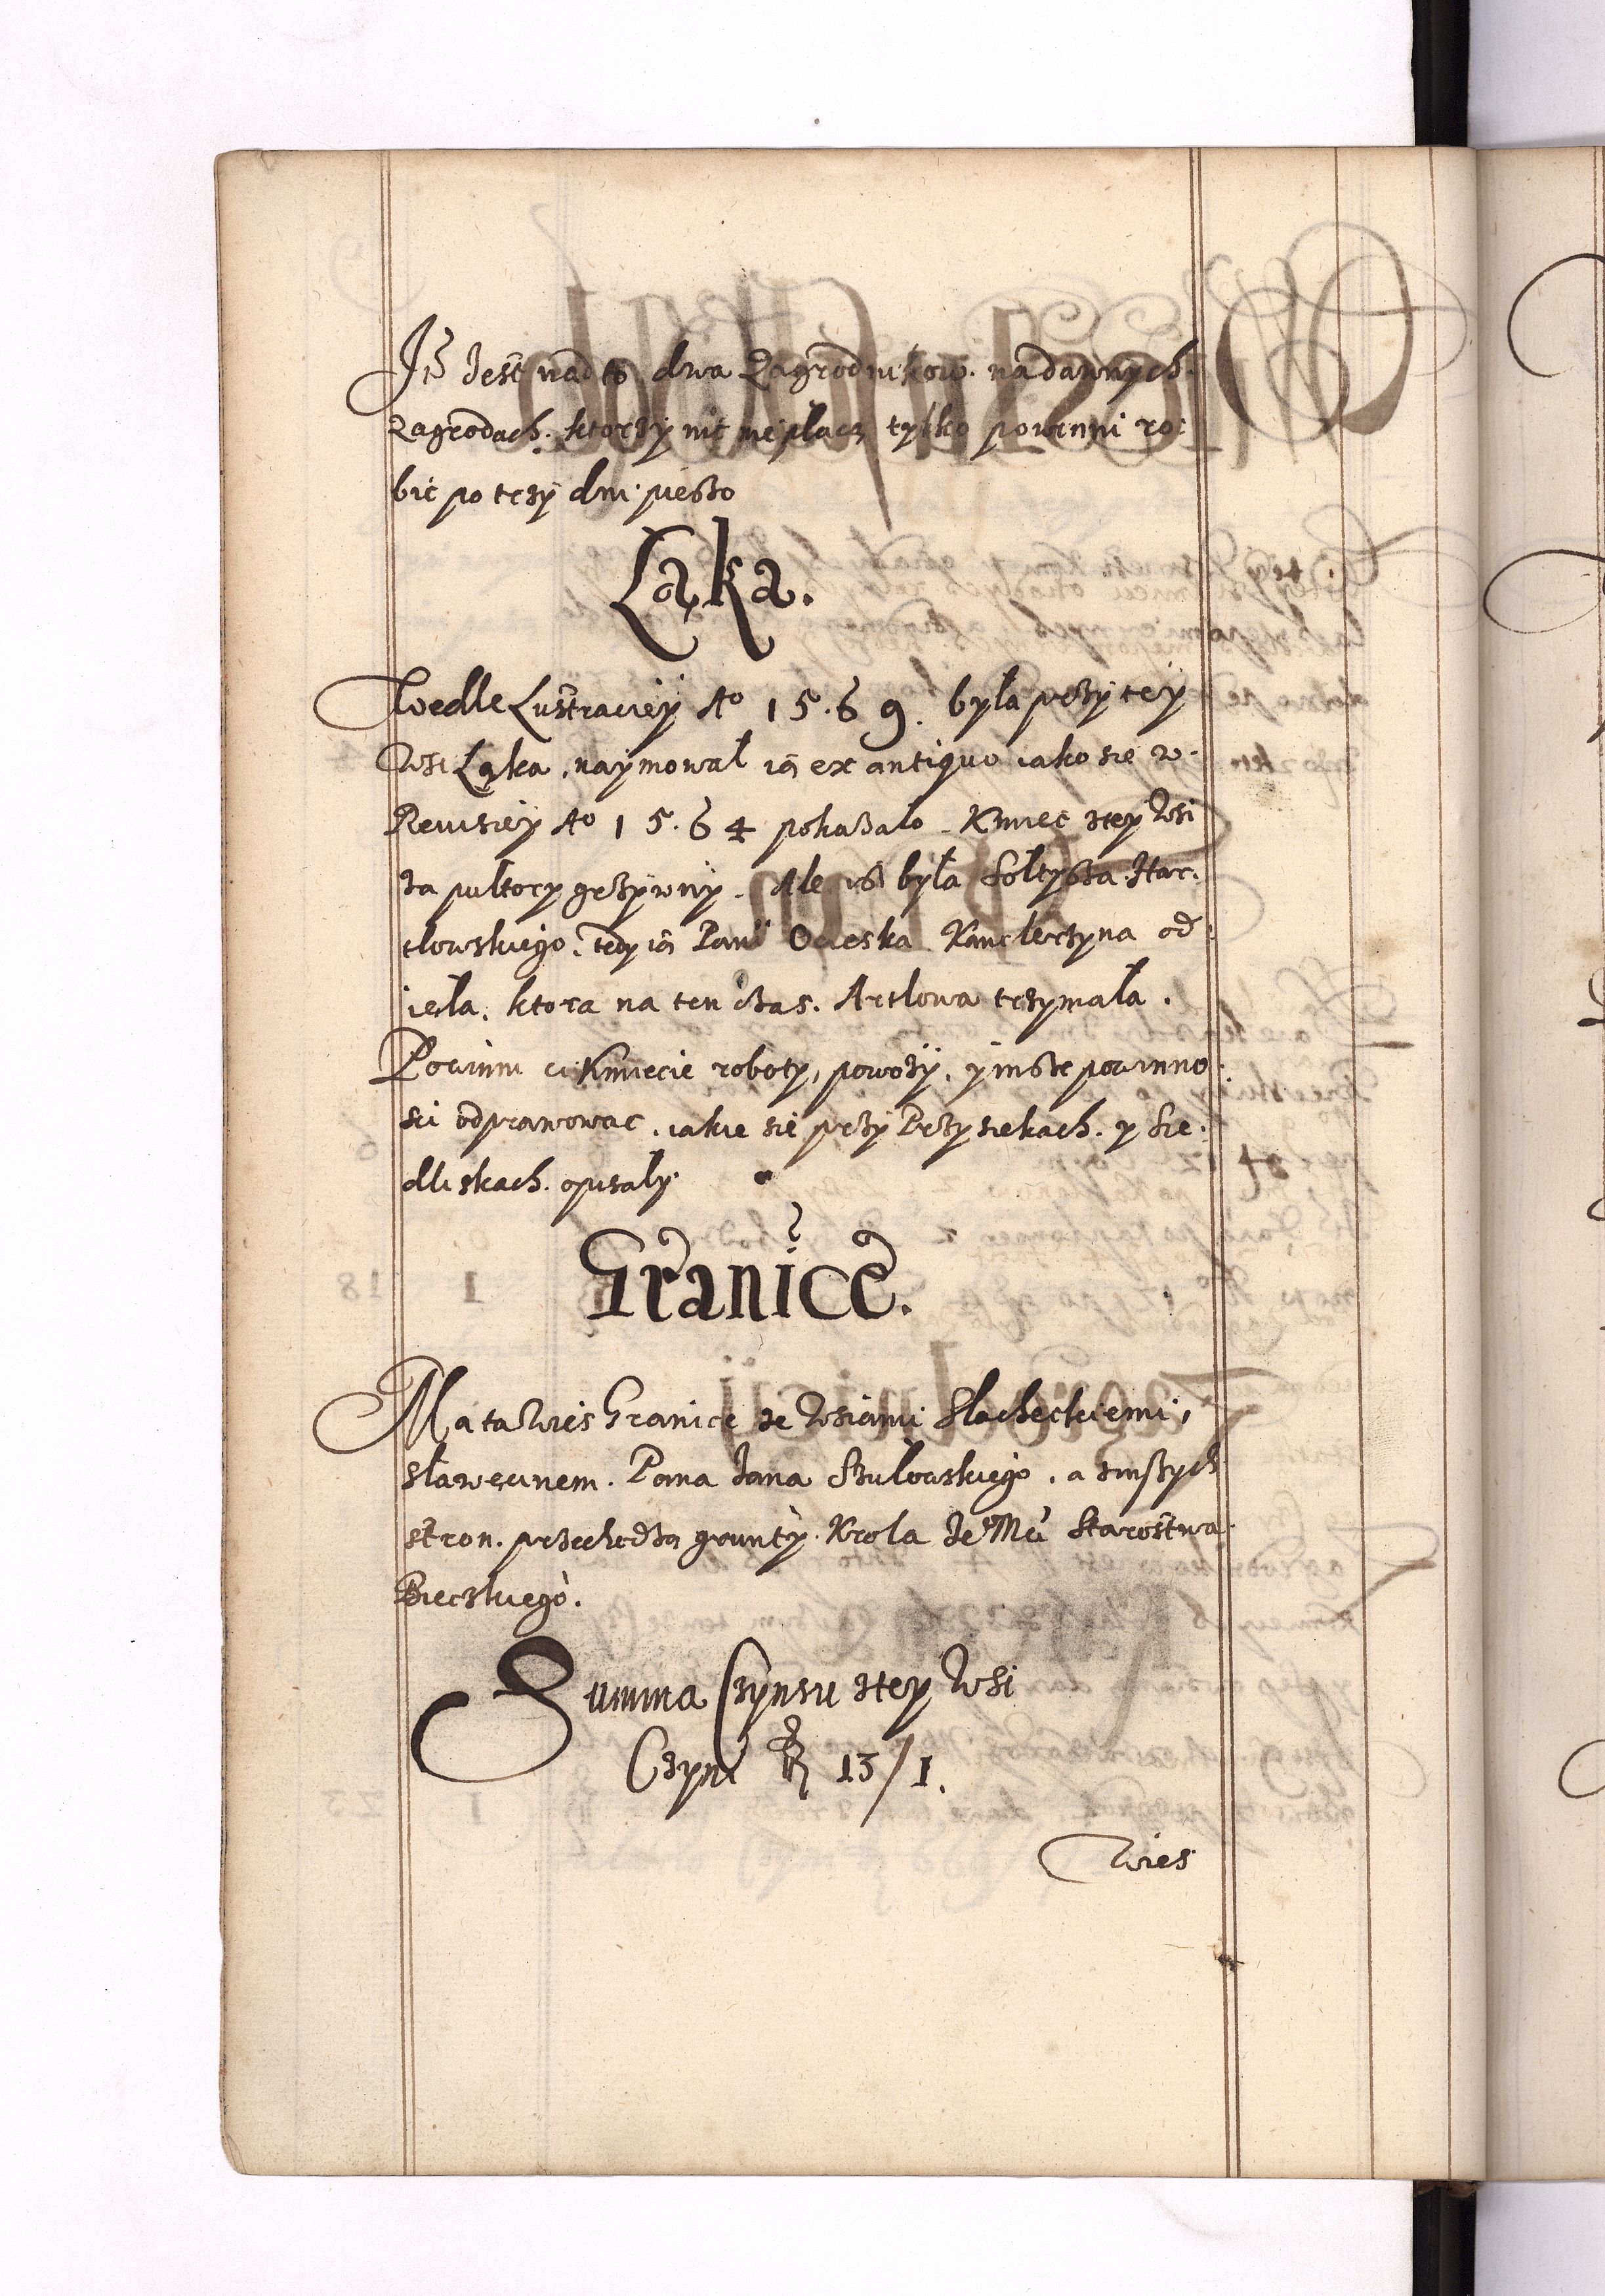 Jt Jest nad to dwa Zagrodnikow. na dawnych.
Zagrodach. ktorzy nic nie płacą tylko powinni ro:
bic po trzÿ dni pieszo
Łąka.
Wedle Lustracieÿ Ao 15.69. była przÿ teÿ
Wsi Łąka, naÿmował ią ex antiquo iako sie w
Rewizieÿ Ao 15.64 pokazało. Kmiec zteÿ Wsi
za pułtorÿ grzÿwnÿ. Ale iż była Sołtysza Har:
clowskiego. tedy ią Pani Ocieska Kanclerzyna od:
ięła. ktora na ten czas. Arclowa trzymała.
Powinni ci Kmiecie robotÿ, powozÿ, ÿ insze powinno:
sci odprawowac. iakie się przÿ Przysiekach. y Sie:
dliskach. opisalÿ.
Granice.
Ma ta Wies Granice ze Wsiami Slacheckiemi,
Sławęcinem. Pana Jana Szulowskiego. a zinszych
stron. przechodzą gruntÿ. Krola Je Mci Starostwa
Bieczkiego.
Summa Czynszu zteÿ Wsi
Czÿni 13/1.
Wies